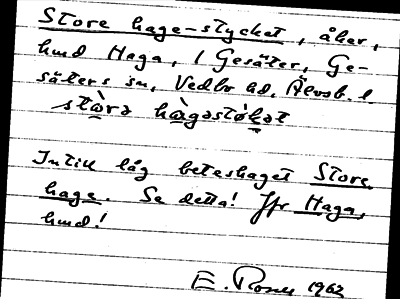 Store hage-stycket, åker,
hmd Haga, 1 Gesäter, Ge-
säters sn, Vedbo hd, Älvsb. l.
stɷ̀rə hɑ̀gəstøkət
Intill låg beteshaget Store
hage. Se detta! Jfr Haga,
hmd!
E. 1962